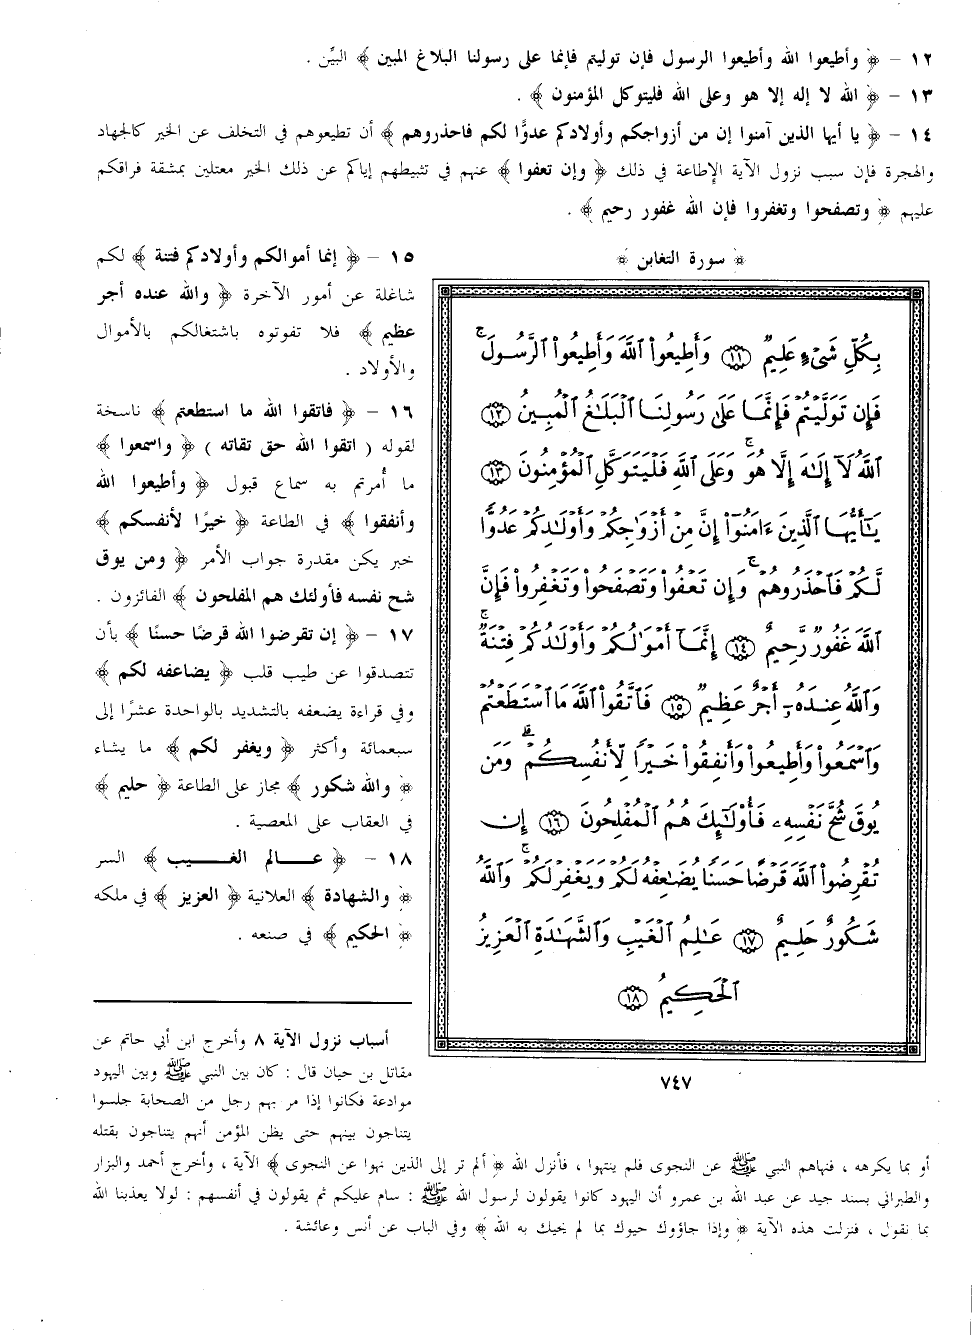 ١٢ – ﴿ وأطيعوا الله وأطيعوا الرسول فإن توليتم فإنما على رسولنا البلاغ المبين ﴾ البيِّن .
١٣ – ﴿ الله لا إله إلا هو وعلى الله فليتوكل المؤمنون ﴾ .
١٤ – ﴿ يا أيها الذين آمنوا إن من أزواجكم وأولادكم عدوًّا لكم فاحذروهم ﴾ أن تطيعوهم في التخلف عن الخير كالجهاد
والهجرة فإن سبب نزول الآية الإطاعة في ذلك ﴿ وإن تعفوا ﴾ عنهم في تثبيطهم إياكم عن ذلك الخير معتلين بمشقة فراقكم
عليهم ﴿ وتصفحوا وتغفروا فإن الله غفور رحيم ﴾ .
﴿ سورة التغابن ﴾
بِكُلِّ شَىْءٍ عَلِيمٌ ۝١١ وَأَطِيعُوا۟ ٱللَّهَ وَأَطِيعُوا۟ ٱلرَّسُولَ ۚ
فَإِن تَوَلَّيْتُمْ فَإِنَّمَا عَلَىٰ رَسُولِنَا ٱلْبَلَـٰغُ ٱلْمُبِينُ ۝١٢
ٱللَّهُ لَآ إِلَـٰهَ إِلَّا هُوَ ۚ وَعَلَى ٱللَّهِ فَلْيَتَوَكَّلِ ٱلْمُؤْمِنُونَ ۝١٣
يَـٰٓأَيُّهَا ٱلَّذِينَ ءَامَنُوٓا۟ إِنَّ مِنْ أَزْوَٰجِكُمْ وَأَوْلَـٰدِكُمْ عَدُوًّا
لَّكُمْ فَٱحْذَرُوهُمْ ۚ وَإِن تَعْفُوا۟ وَتَصْفَحُوا۟ وَتَغْفِرُوا۟ فَإِنَّ
ٱللَّهَ غَفُورٌ رَّحِيمٌ ۝١٤ إِنَّمَآ أَمْوَٰلُكُمْ وَأَوْلَـٰدُكُمْ فِتْنَةٌ ۚ
وَٱللَّهُ عِندَهُۥٓ أَجْرٌ عَظِيمٌ ۝١٥ فَٱتَّقُوا۟ ٱللَّهَ مَا ٱسْتَطَعْتُمْ
وَٱسْمَعُوا۟ وَأَطِيعُوا۟ وَأَنفِقُوا۟ خَيْرًا لِّأَنفُسِكُمْ ۗ وَمَن
يُوقَ شُحَّ نَفْسِهِۦ فَأُو۟لَـٰٓئِكَ هُمُ ٱلْمُفْلِحُونَ ۝١٦ إِن
تُقْرِضُوا۟ ٱللَّهَ قَرْضًا حَسَنًا يُضَـٰعِفْهُ لَكُمْ وَيَغْفِرْ لَكُمْ ۚ وَٱللَّهُ
شَكُورٌ حَلِيمٌ ۝١٧ عَـٰلِمُ ٱلْغَيْبِ وَٱلشَّهَـٰدَةِ ٱلْعَزِيزُ
ٱلْحَكِيمُ ۝١٨
٧٤٧
١٥ – ﴿ إنما أموالكم وأولادكم فتنة ﴾ لكم
شاغلة عن أمور الآخرة ﴿ والله عنده أجر
عظيم ﴾ فلا تفوتوه باشتغالكم بالأموال
والأولاد .
١٦ – ﴿ فاتقوا الله ما استطعتم ﴾ ناسخة
لقوله ( اتقوا الله حق تقاته ) ﴿ واسمعوا ﴾
ما أُمرتم به سماع قبول ﴿ وأطيعوا الله
وأنفقوا ﴾ في الطاعة ﴿ خيرًا لأنفسكم ﴾
خبر يكن مقدرة جواب الأمر ﴿ ومن يوق
شح نفسه فأولئك هم المفلحون ﴾ الفائزون .
١٧ – ﴿ إن تقرضوا الله قرضًا حسنًا ﴾ بأن
تتصدقوا عن طيب قلب ﴿ يضاعفه لكم ﴾
وفي قراءة يضعفه بالتشديد بالواحدة عشرًا إلى
سبعمائة وأكثر ﴿ ويغفر لكم ﴾ ما يشاء
﴿ والله شكور ﴾ مجاز على الطاعة ﴿ حليم ﴾
في العقاب على المعصية .
١٨ – ﴿ عـالم الغـيب ﴾ السر
﴿ والشهادة ﴾ العلانية ﴿ العزيز ﴾ في ملكه
﴿ الحكيم ﴾ في صنعه .
أسباب نزول الآية ٨ وأخرج ابن أبي حاتم عن
مقاتل بن حيان قال : كان بين النبي ﷺ وبين اليهود
موادعة فكانوا إذا مر بهم رجل من الصحابة جلسوا
يتناجون بينهم حتى يظن المؤمن أنهم يتناجون بقتله
أو بما يكرهه ، فنهاهم النبي ﷺ عن النجوى فلم ينتهوا ، فأنزل الله ﴿ ألم تر إلى الذين نهوا عن النجوى ﴾ الآية ، وأخرج أحمد والبزار
والطبراني بسند جيد عن عبد الله بن عمرو أن اليهود كانوا يقولون لرسول الله ﷺ : سام عليكم ثم يقولون في أنفسهم : لولا يعذبنا الله
بما نقول ، فنزلت هذه الآية ﴿ وإذا جاؤوك حيوك بما لم يحيك به الله ﴾ وفي الباب عن أنس وعائشة .